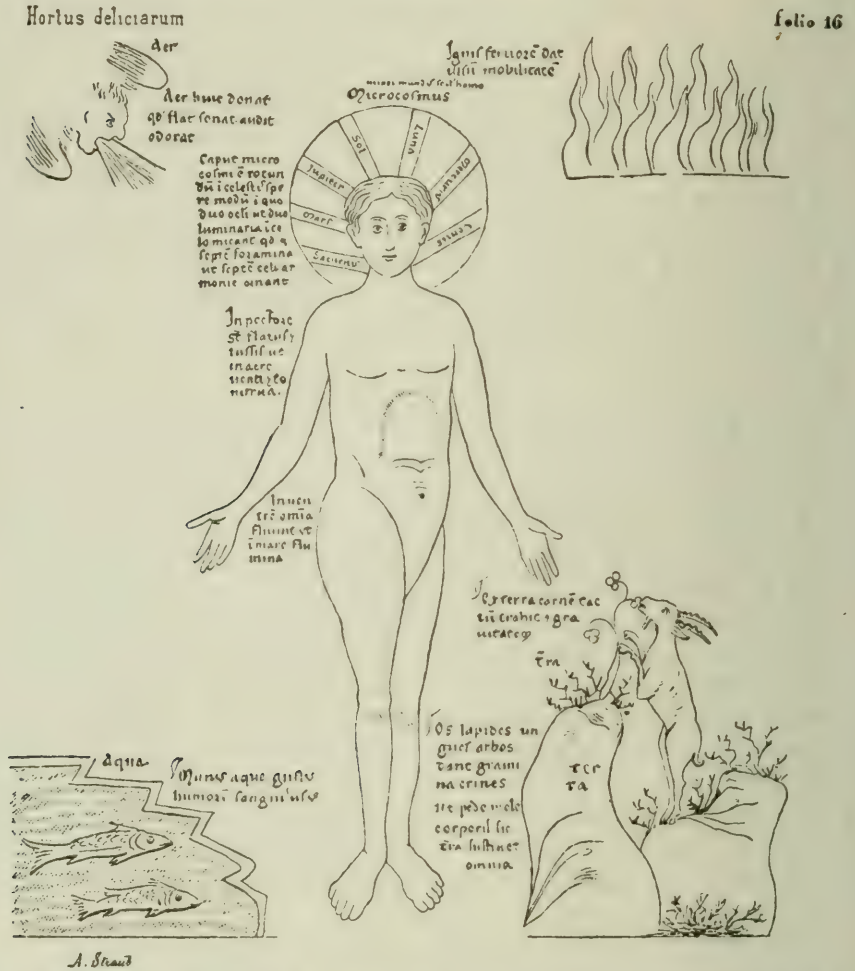 Hortus deliciarum
folio 16
Aer
Aer huic donat
qd' flat sonat audit
odorat
Ignis fervorē dat
visū mobilitatē
minor mundus
homo
Microcosmus
Sol
Luna
Jupiter
Mercurius
Mars
Venus
Saturnus
Caput micro
cosmi ē rotun
dū i celestis spe
re modū i quo
duo ocli ut duo
luminaria i ce
lo micant qd
septē foramina
ut septē celū ar
monie ornant
In pectore
st flatus
tussis ut
in aere
venti
nitrua.
In ven
trē omīa
fluunt ut
i mare flu
mina
Ex terra carnē tac
tū trahit gra
vitatēq
tra
Os lapides un
gues arbos
dant grami
na crines
ut pedes mole
corporis sic
tra sustinet
omnia
ter
ra
Aqua
Munus aque gustus
humor sanguinis
A. Straub